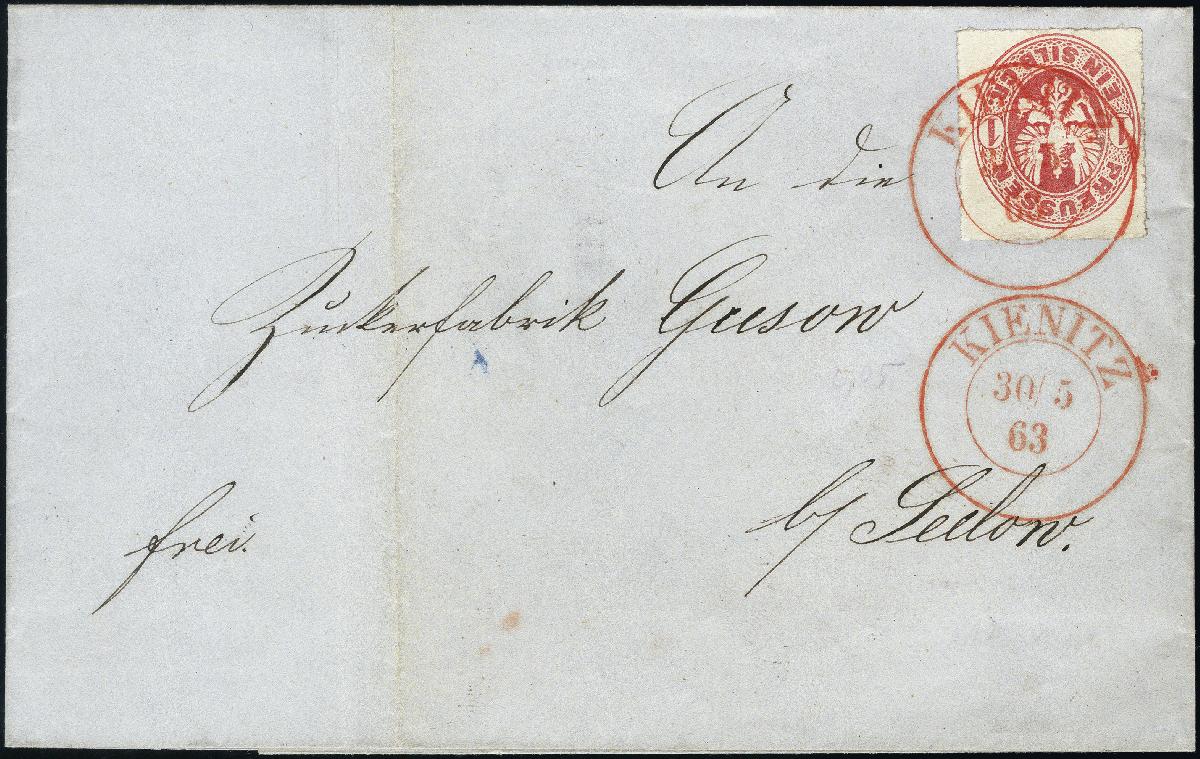 EIN SILB. GR.
1 1
PREUSSEN
KI
An die
Zuckerfabrik Gusow
KIENITZ
30/5
63
b/ Seelow.
frei.